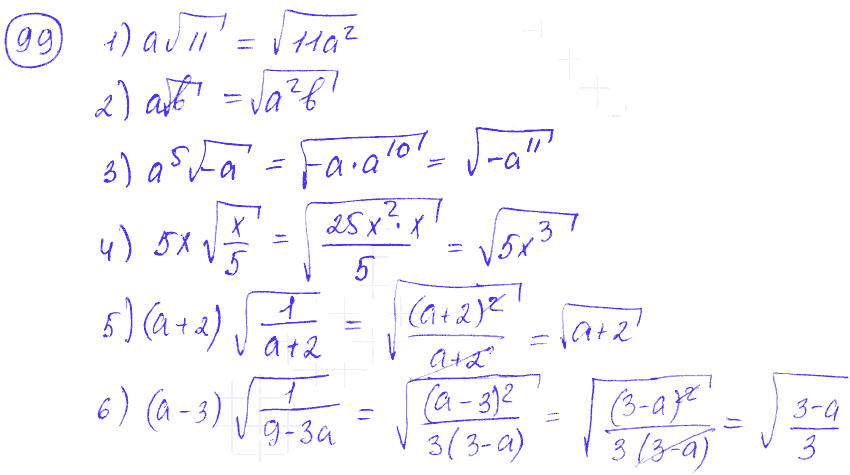 99 1) a√11 = √11a²
2) a√b = √a²b
3) a⁵√-a = √-a·a¹⁰ = √-a¹¹
4) 5x√(x/5) = √(25x²·x/5) = √5x³
5) (a+2)√(1/(a+2)) = √((a+2)²/(a+2)) = √a+2
6) (a-3)√(1/(9-3a)) = √((a-3)²/(3(3-a))) = √((3-a)²/(3(3-a))) = √((3-a)/3)